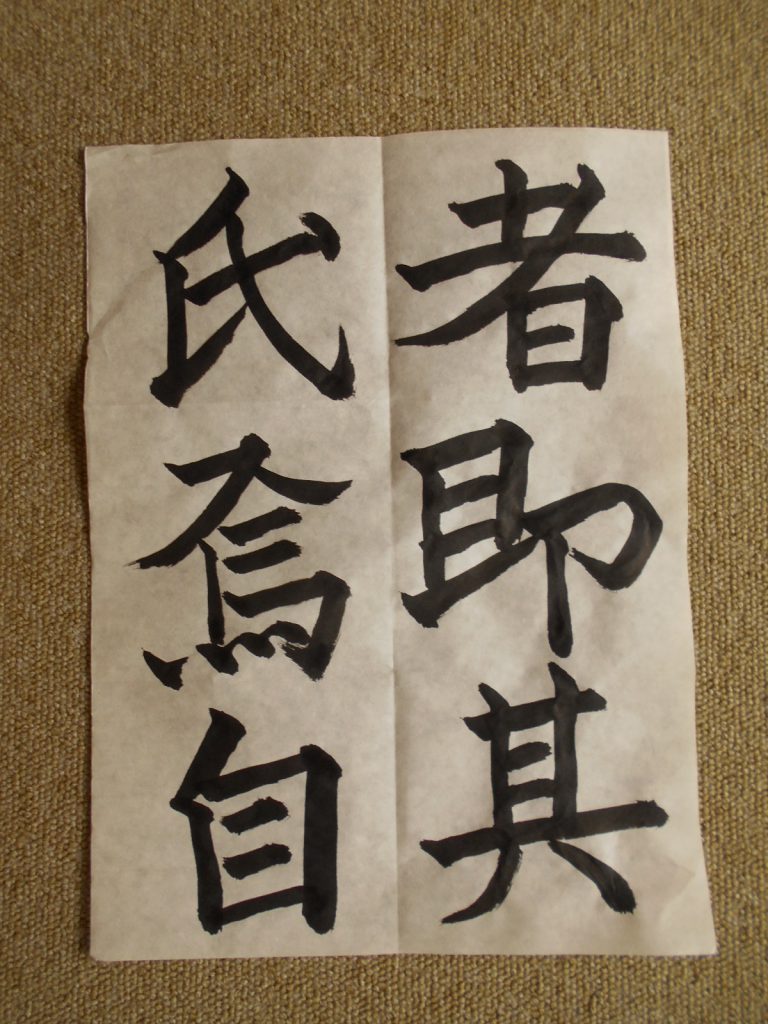 者即其
氏焉自